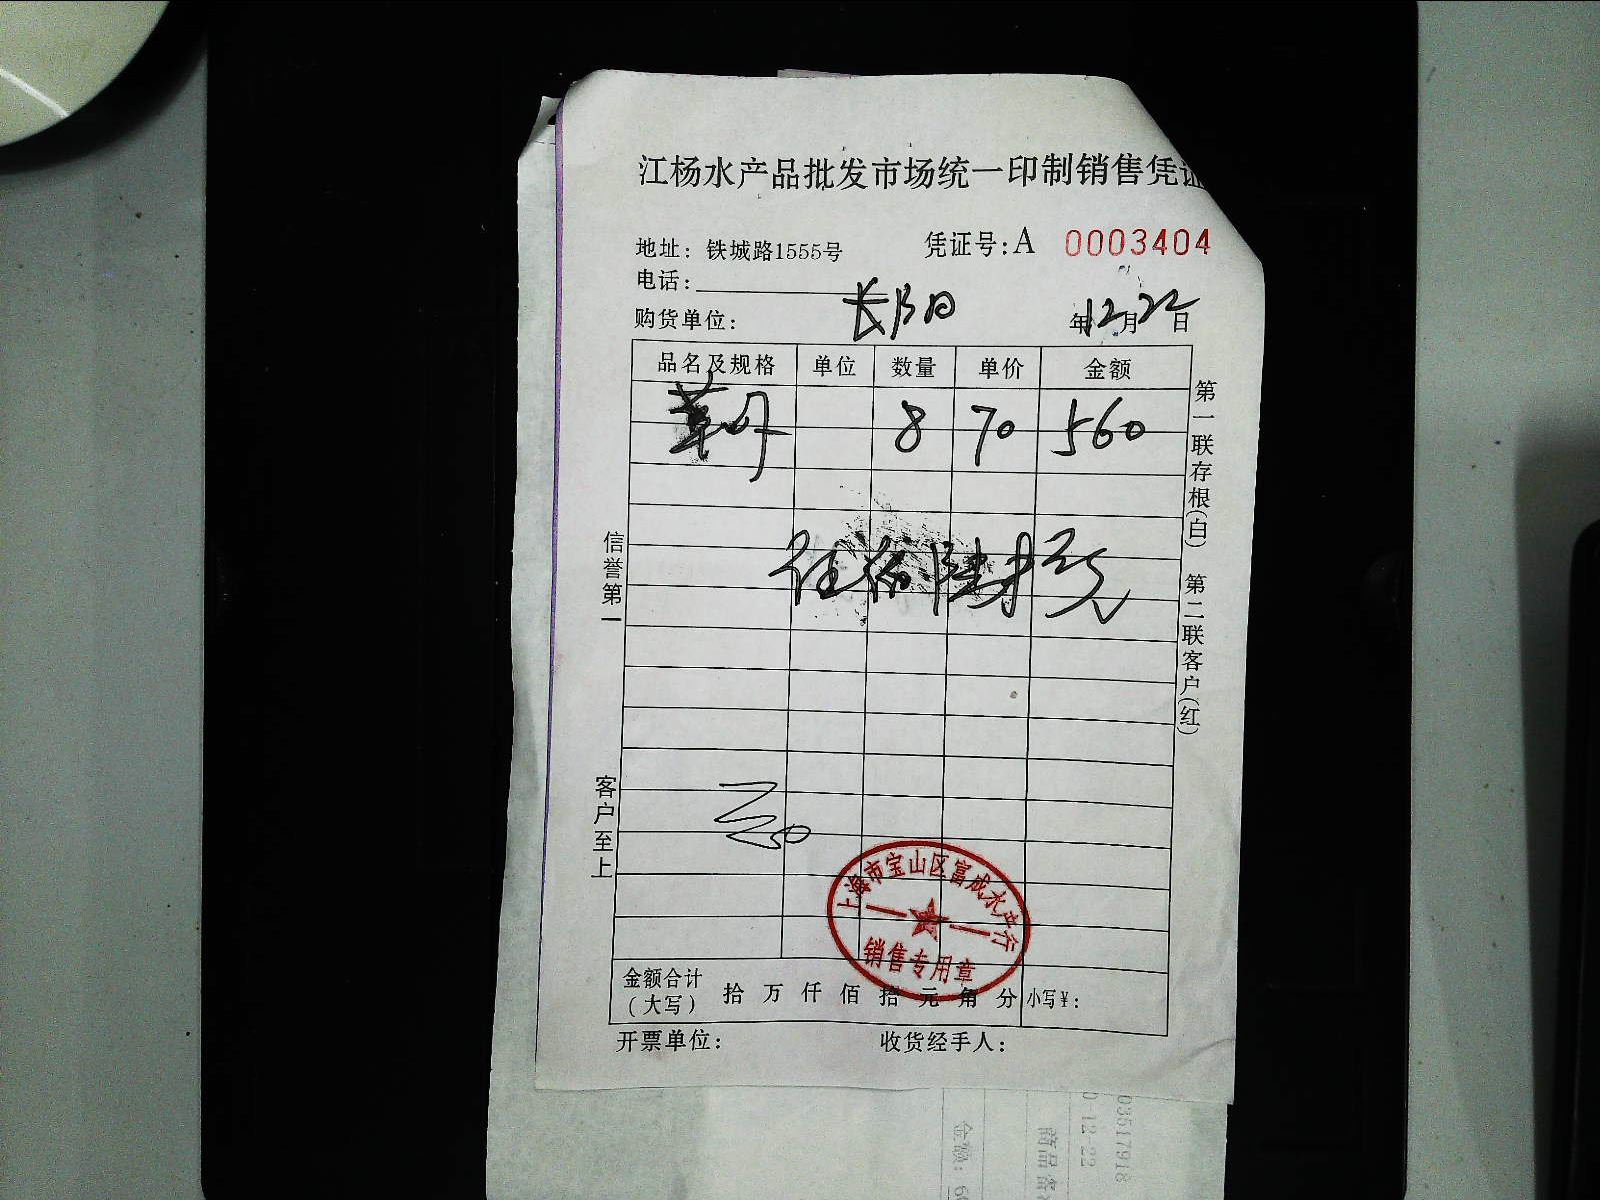 江杨水产品批发市场统一印制销售凭证
地址：铁城路1555号 凭证号：A 0003404
电话：
购货单位：长阳 年12月22日
品名及规格 单位 数量 单价 金额
8 70 560
伍佰陆拾元
信誉第一
客户至上
第一联存根（白） 第二联客户（红）
上海市宝山区富成水产行
销售专用章
金额合计（大写） 拾 万 仟 佰 拾 元 角 分 小写￥：
开票单位： 收货经手人：
03517918
12-22
商品名
金额：6